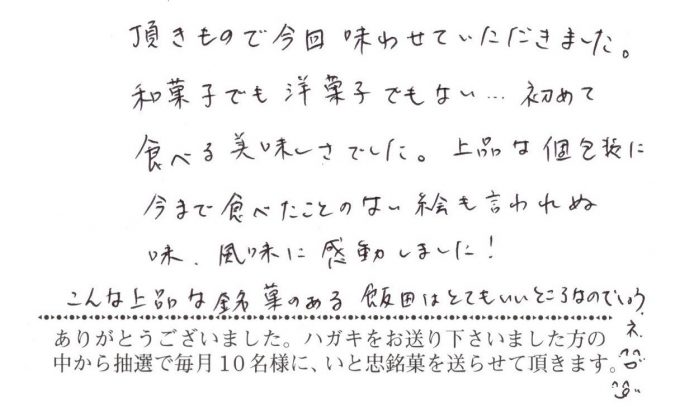 頂きもので今回味わせていただきました。
和菓子でも洋菓子でもない…初めて
食べる美味しさでした。上品な個包装に
今まで食べたことのない絵も言われぬ
味、風味に感動しました！
こんな上品な銘菓のある飯田はとてもいいところなのでしょう
ネ。
ありがとうございました。ハガキをお送り下さいました方の
中から抽選で毎月10名様に、いと忠銘菓を送らせて頂きます。